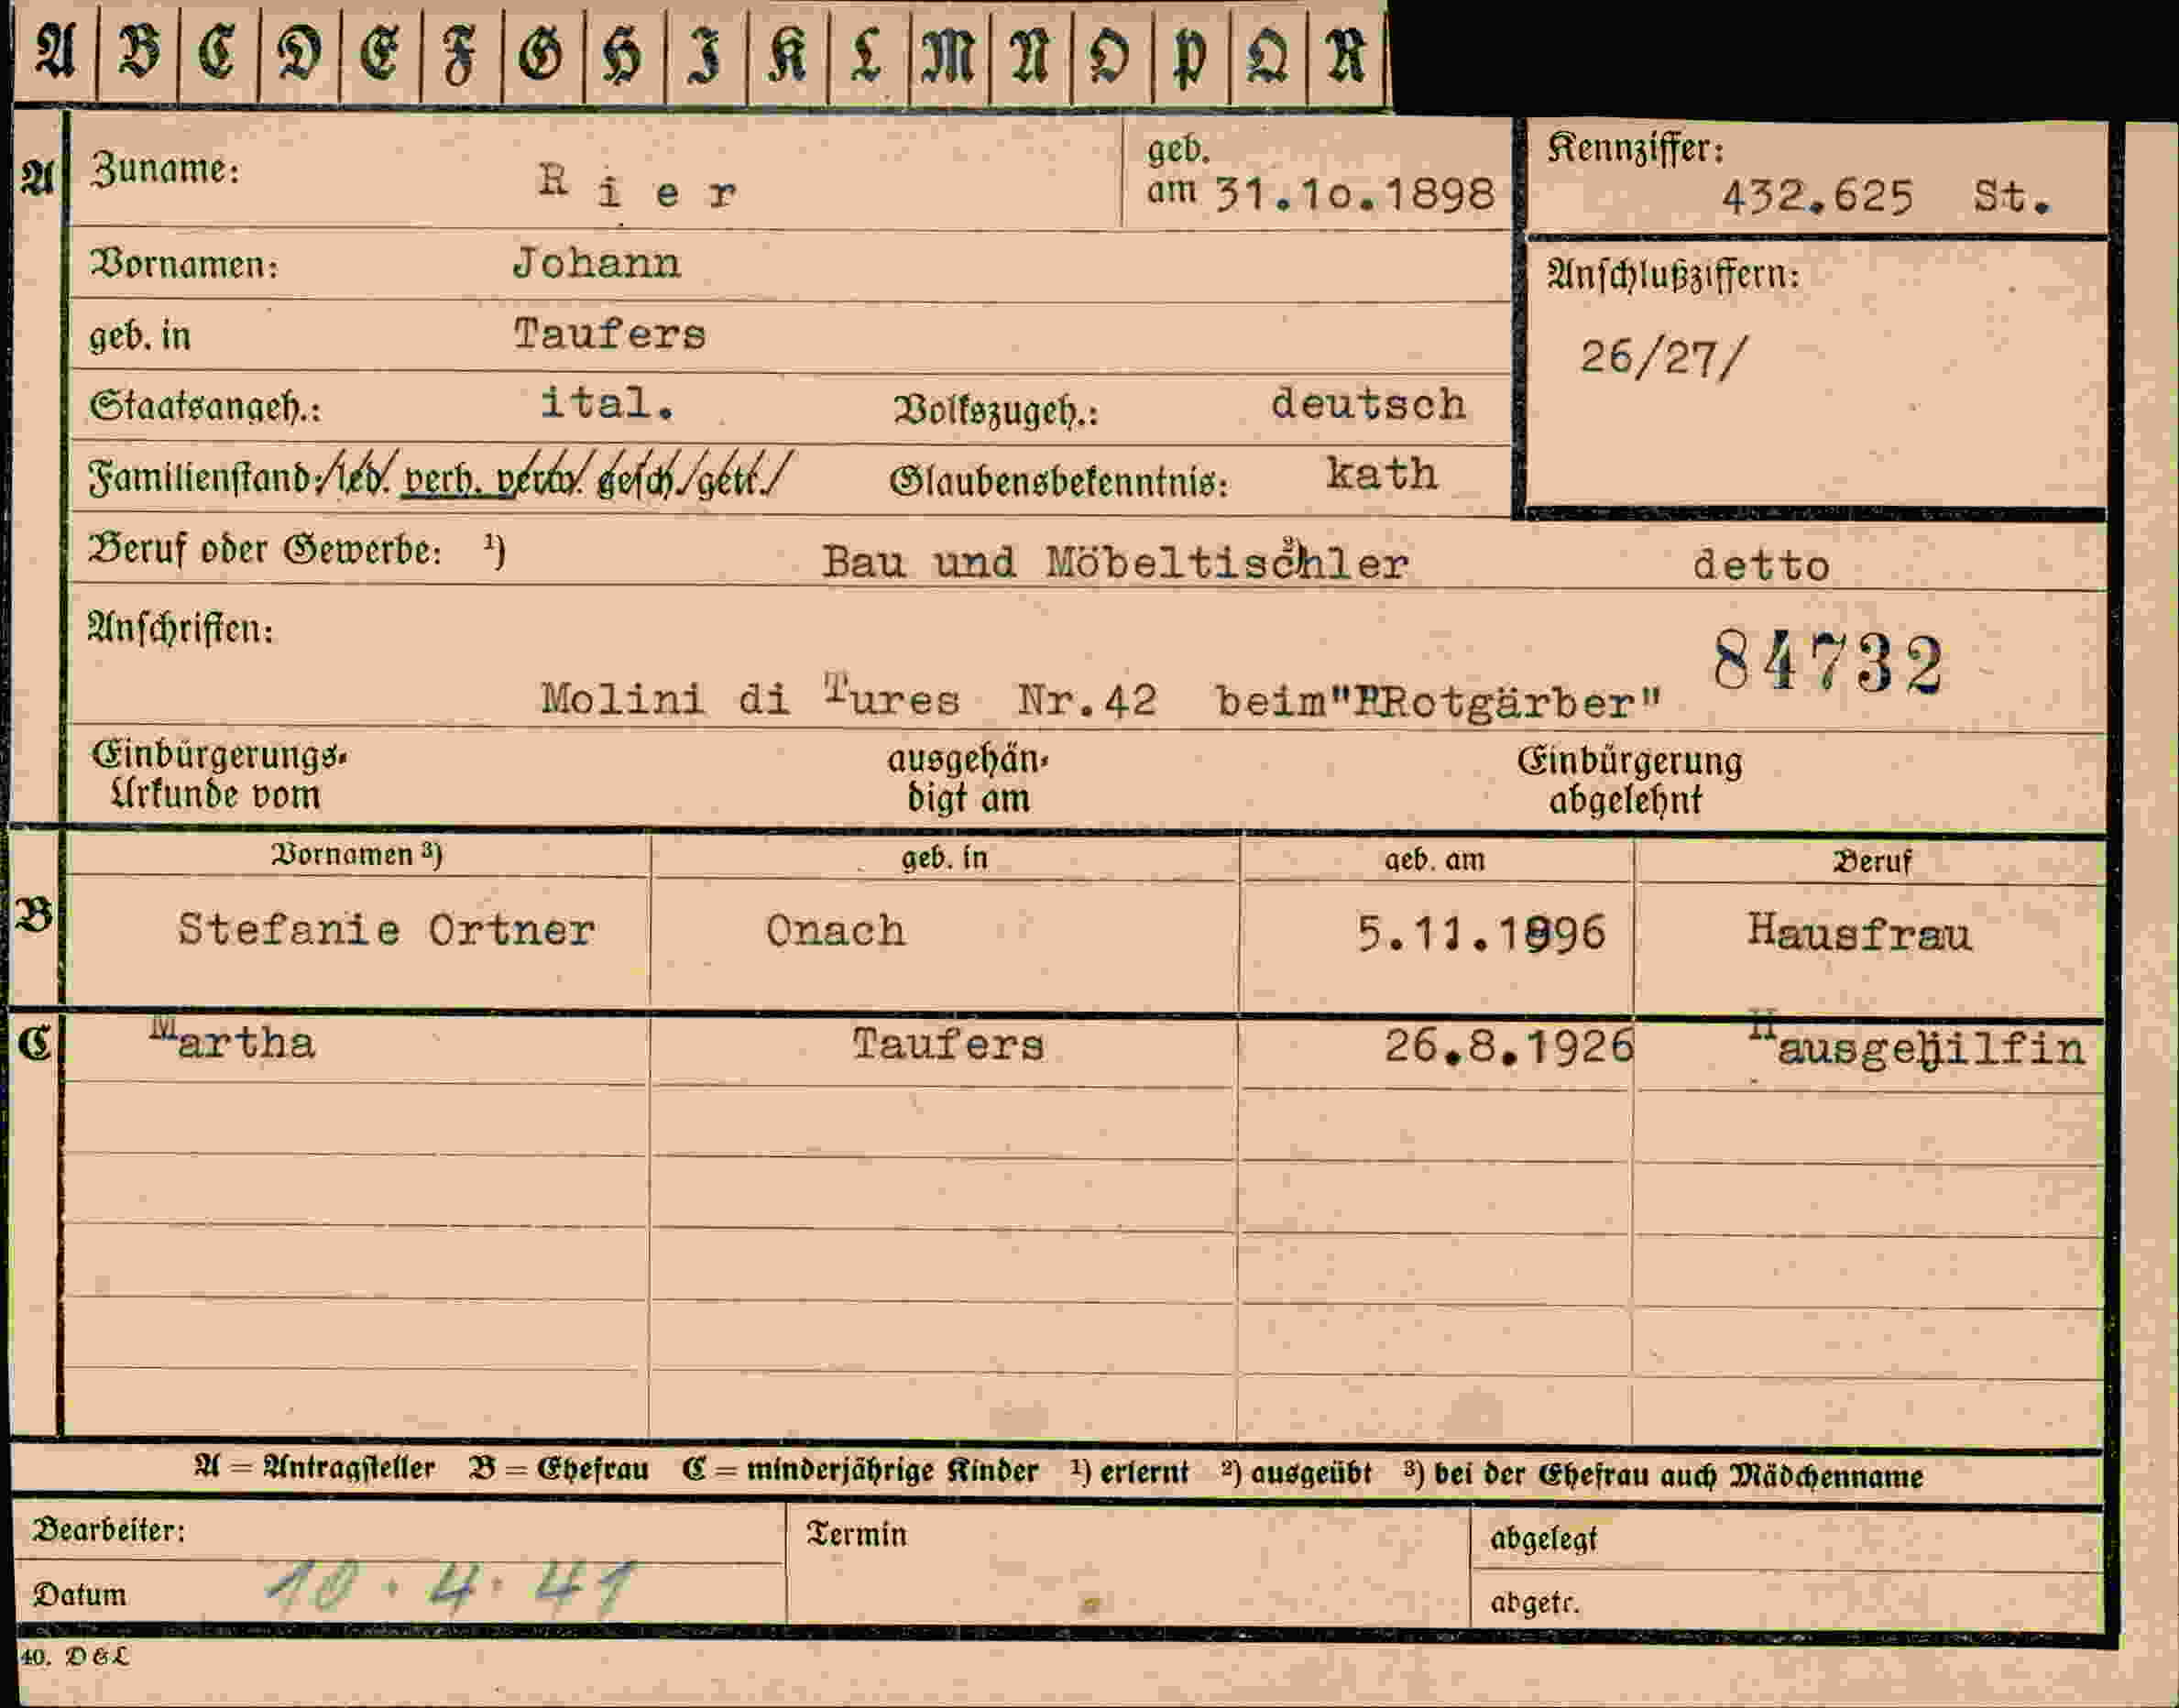 A B C D E F G H I K L M N O P Q R
A Zuname: Rier geb. am 31.10.1898 Kennziffer: 432.625 St.
Vornamen: Johann Anschlußziffern:
geb. in Taufers 26/27/
Staatsangeh.: ital. Volkszugeh.: deutsch
Familienstand: led. verh. verw. gesch. getr. Glaubensbekenntnis: kath
Beruf oder Gewerbe: ¹) Bau und Möbeltischler ²) detto
Anschriften: 84732
Molini di Tures Nr.42 beim"PRotgärber"
Einbürgerungs- ausgehän- Einbürgerung
Urkunde vom digt am abgelehnt
Vornamen ³) geb. in geb. am Beruf
B Stefanie Ortner Onach 5.11.1896 Hausfrau
C Martha Taufers 26.8.1926 Hausgehilfin
A = Antragsteller B = Ehefrau C = minderjährige Kinder ¹) erlernt ²) ausgeübt ³) bei der Ehefrau auch Mädchenname
Bearbeiter: Termin abgelegt
Datum 10.4.41 abgetr.
40. D & L